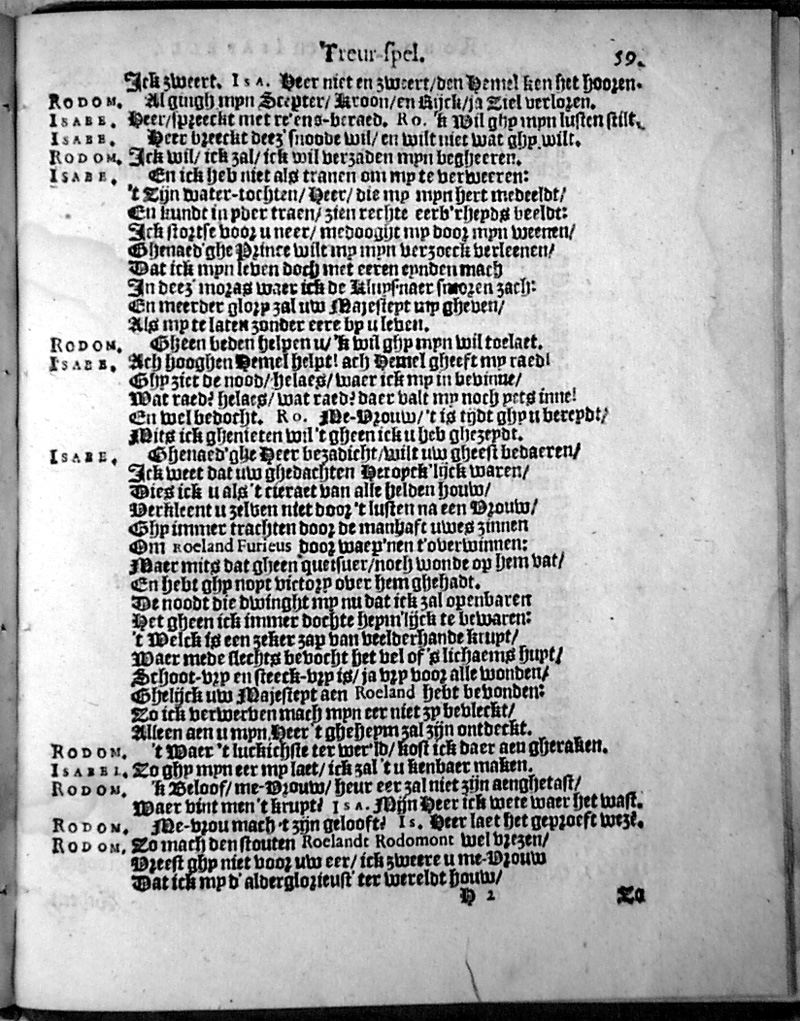 Treur-spel. 59.
Ick zweert. ISA. Heer niet en zweert/den Hemel ken het hooren.
RODOM. Al gingh myn Scepter/ Kroon/en Rijck/ja Ziel verloren.
ISABE. Heer/spreeckt met re'ens-beraed. RO. 'k Wil ghy myn lusten stilt.
ISABE. Heer breeckt deez' snoode wil/ en wilt niet wat ghy wilt.
RODOM. Ick wil/ ick zal/ ick wil verzaden myn begheeren.
ISABE. En ick heb niet als tranen om my te verweeren:
't Zijn water-tochten/ Heer/ die my myn hert medeeldt/
En kundt in yder traen/ zien rechte eerb'rheyds beeldt:
Ick stortse voor u neer/ medooght my door myn weenen/
Ghenaed'ghe Prince wilt my myn verzoeck verleenen/
Dat ick myn leven doch met eeren eynden mach
In deez' moras waer ick de Kluysnaer smoren zach:
En meerder glory zal uw Majesteyt uyt gheven/
Als my te laten zonder eere by u leven.
RODOM. Gheen beden helpen u/ 'k wil ghy myn wil toelaet.
ISABE. Ach hooghen Hemel helpt! ach Hemel gheeft my raed!
Ghy ziet de nood/ helaes/ waer ick my in bevinne/
Wat raed? helaes/ wat raed? daer valt my noch yets inne!
En wel bedocht. RO. Me-Vrouw/ 't is tydt ghy u bereydt/
Mits ick ghenieten wil 't gheen ick u heb ghezeydt.
ISABE. Ghenaed'ghe Heer bezadicht/ wilt uw gheest bedaeren/
Ick weet dat uw ghedachten Heroyck'lijck waren/
Dies ick u als 't cieraet van alle helden houw/
Verkleent u zelven niet door 't lusten na een Vrouw/
Ghy immer trachten door de manhaft uwes zinnen
Om Roeland Furieus door waep'nen t'overwinnen:
Maer mits dat gheen quetsuer/ noch wonde op hem vat/
En hebt ghy noyt victory over hem ghehadt.
De noodt die dwinght my nu dat ick zal openbaren
Het gheen ick immer dochte heym'lijck te bewaren:
't Welck is een zeker zap van veelderhande kruyt/
Waer mede slechts bevocht het vel of 's lichaems huyt/
Schoot-vry en steeck-vry is/ ja vry voor alle wonden/
Ghelijck uw Majesteyt aen Roeland hebt bevonden:
Zo ick verwerven mach myn eer niet zy bevleckt/
Alleen aen u myn Heer 't gheheym zal zijn ontdeckt.
RODOM. 't Waer 't luckichste ter wer'ld/ kost ick daer aen gheraken.
ISABEL. Zo ghy myn eer my laet/ ick zal 't u kenbaer maken.
RODOM. 'k Beloof/ me-Vrouw/ heur eer zal niet zijn aenghetast/
Waer vint men 't kruyt? ISA. Mijn Heer ick wete waer het wast.
RODOM. Me-vrou mach 't zijn gelooft? IS. Heer laet het geproeft wezē.
RODOM. Zo mach den stouten Roelandt Rodomont wel vrezen/
Vreest ghy niet voor uw eer/ ick zweere u me-Vrouw
Dat ick my d' alderglorieust' ter wereldt houw/
H 2 Zo